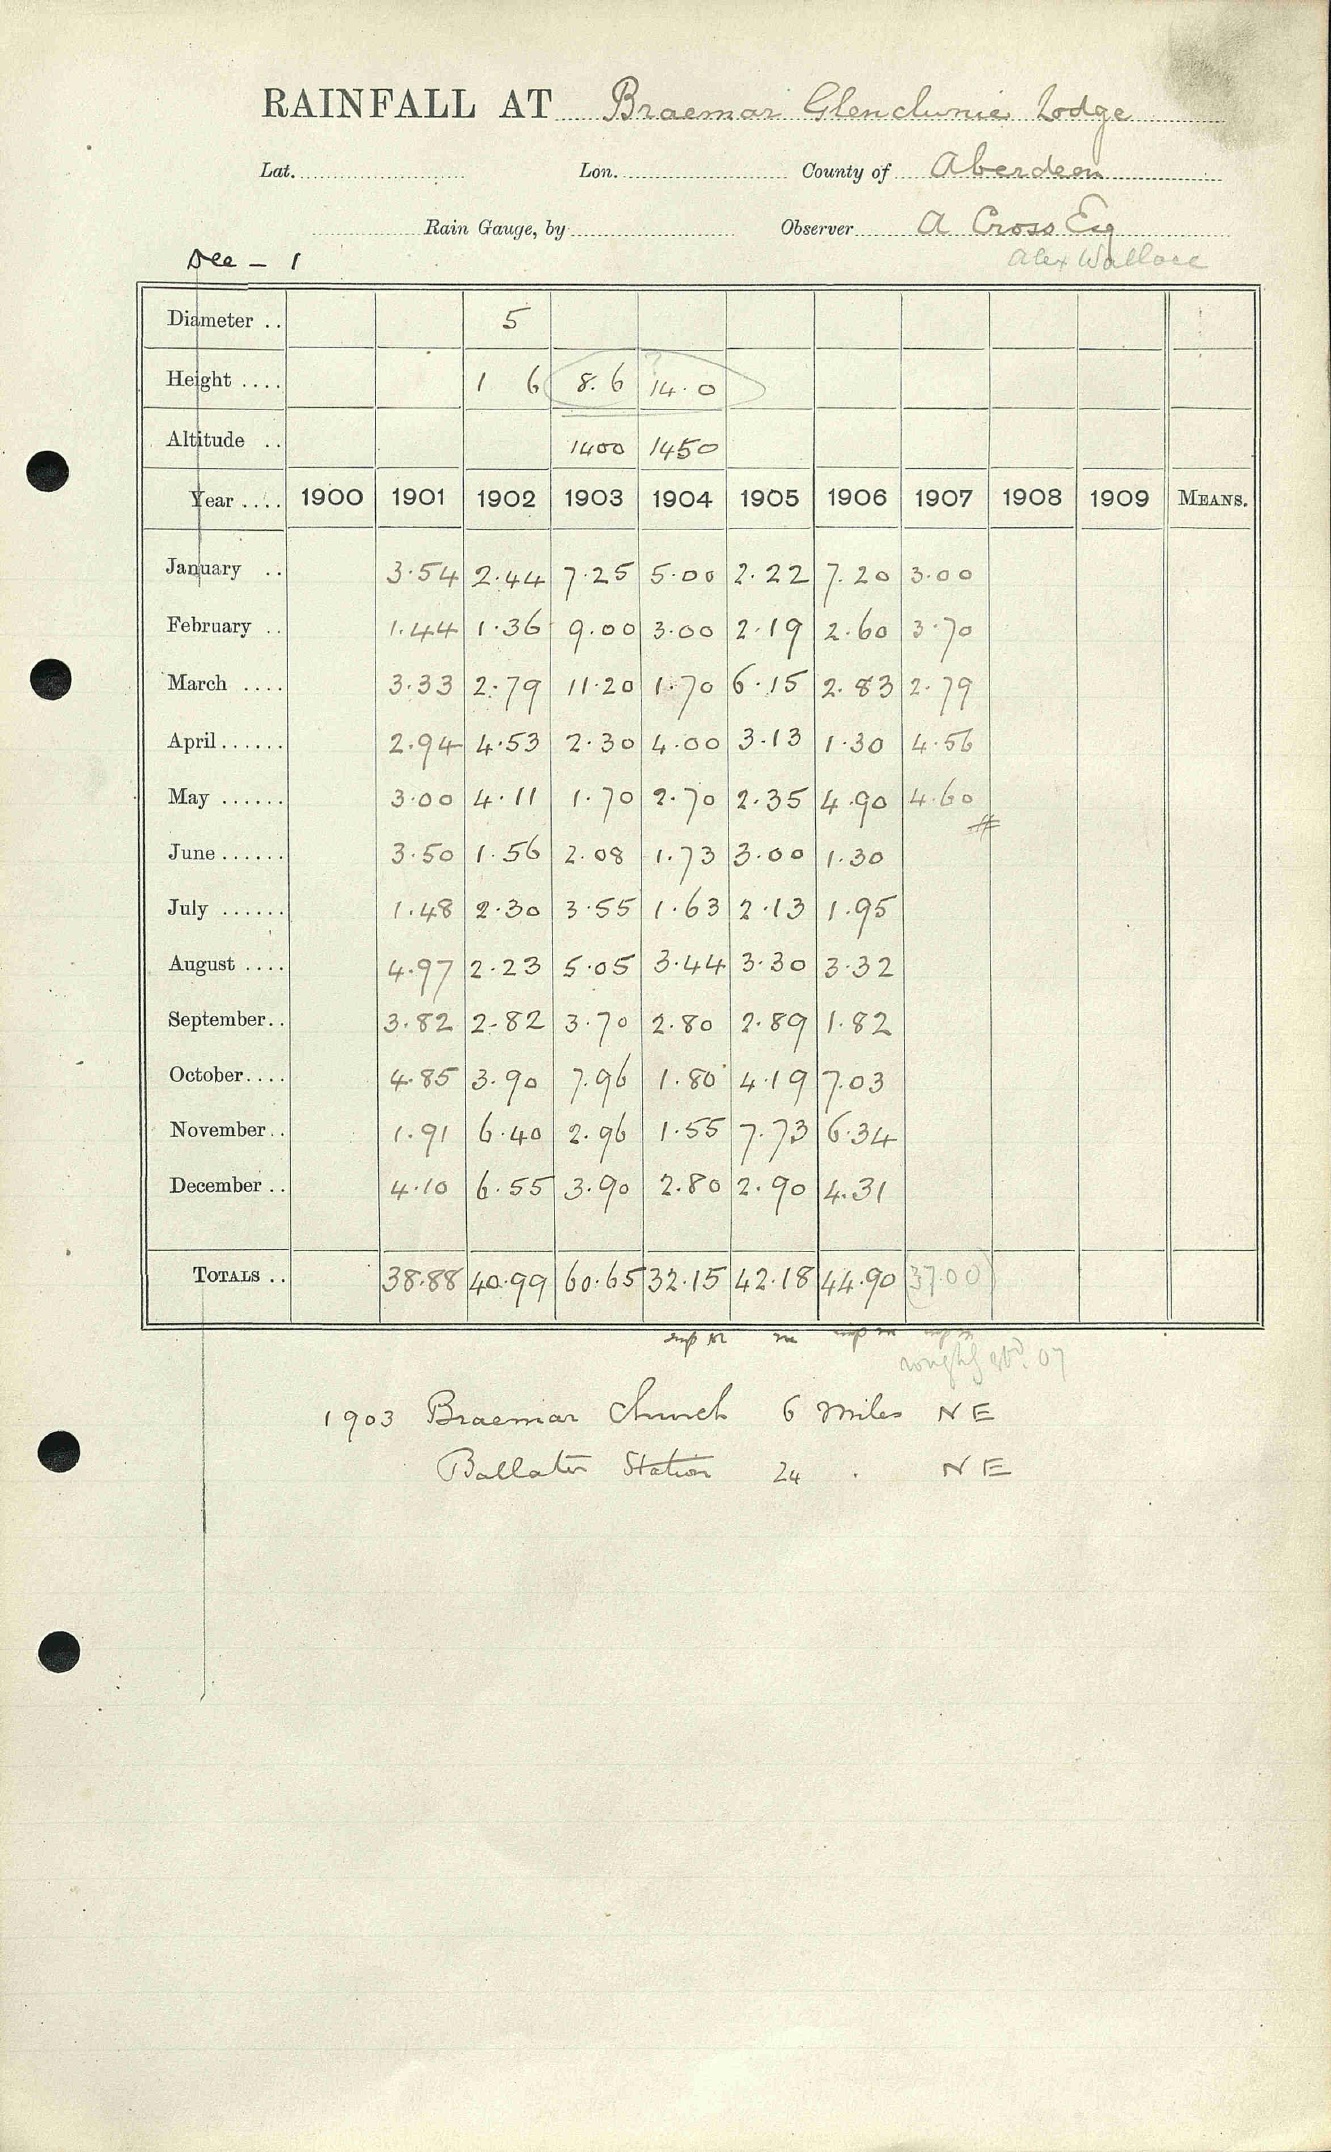 RAINFALL AT Braemar Glenclunie Lodge
Lat. Lon. County of Aberdeen
Rain Gauge, by Observer A Cross Esq
Dee - 1 Alex Wallace
Diameter .. 5
Height .... 1 6 8.6 14.0
Altitude .. 1400 1450
Year .... 1900 1901 1902 1903 1904 1905 1906 1907 1908 1909 MEANS.
January .. 3.54 2.44 7.25 5.00 2.22 7.20 3.00
February .. 1.44 1.36 9.00 3.00 2.19 2.60 3.70
March .... 3.33 2.79 11.20 1.70 6.15 2.83 2.79
April...... 2.94 4.53 2.30 4.00 3.13 1.30 4.56
May ...... 3.00 4.11 1.70 2.70 2.35 4.90 4.60
June...... 3.50 1.56 2.08 1.73 3.00 1.30
July ...... 1.48 2.30 3.55 1.63 2.13 1.95
August .... 4.97 2.23 5.05 3.44 3.30 3.32
September.. 3.82 2.82 3.70 2.80 2.89 1.82
October.... 4.85 3.90 7.96 1.80 4.19 7.03
November.. 1.91 6.40 2.96 1.55 7.73 6.34
December .. 4.10 6.55 3.90 2.80 2.90 4.31
TOTALS .. 38.88 40.99 60.65 32.15 42.18 44.90 (37.00)
roughly 07
1903 Braemar Church 6 Miles NE
Ballater Station 24 . NE